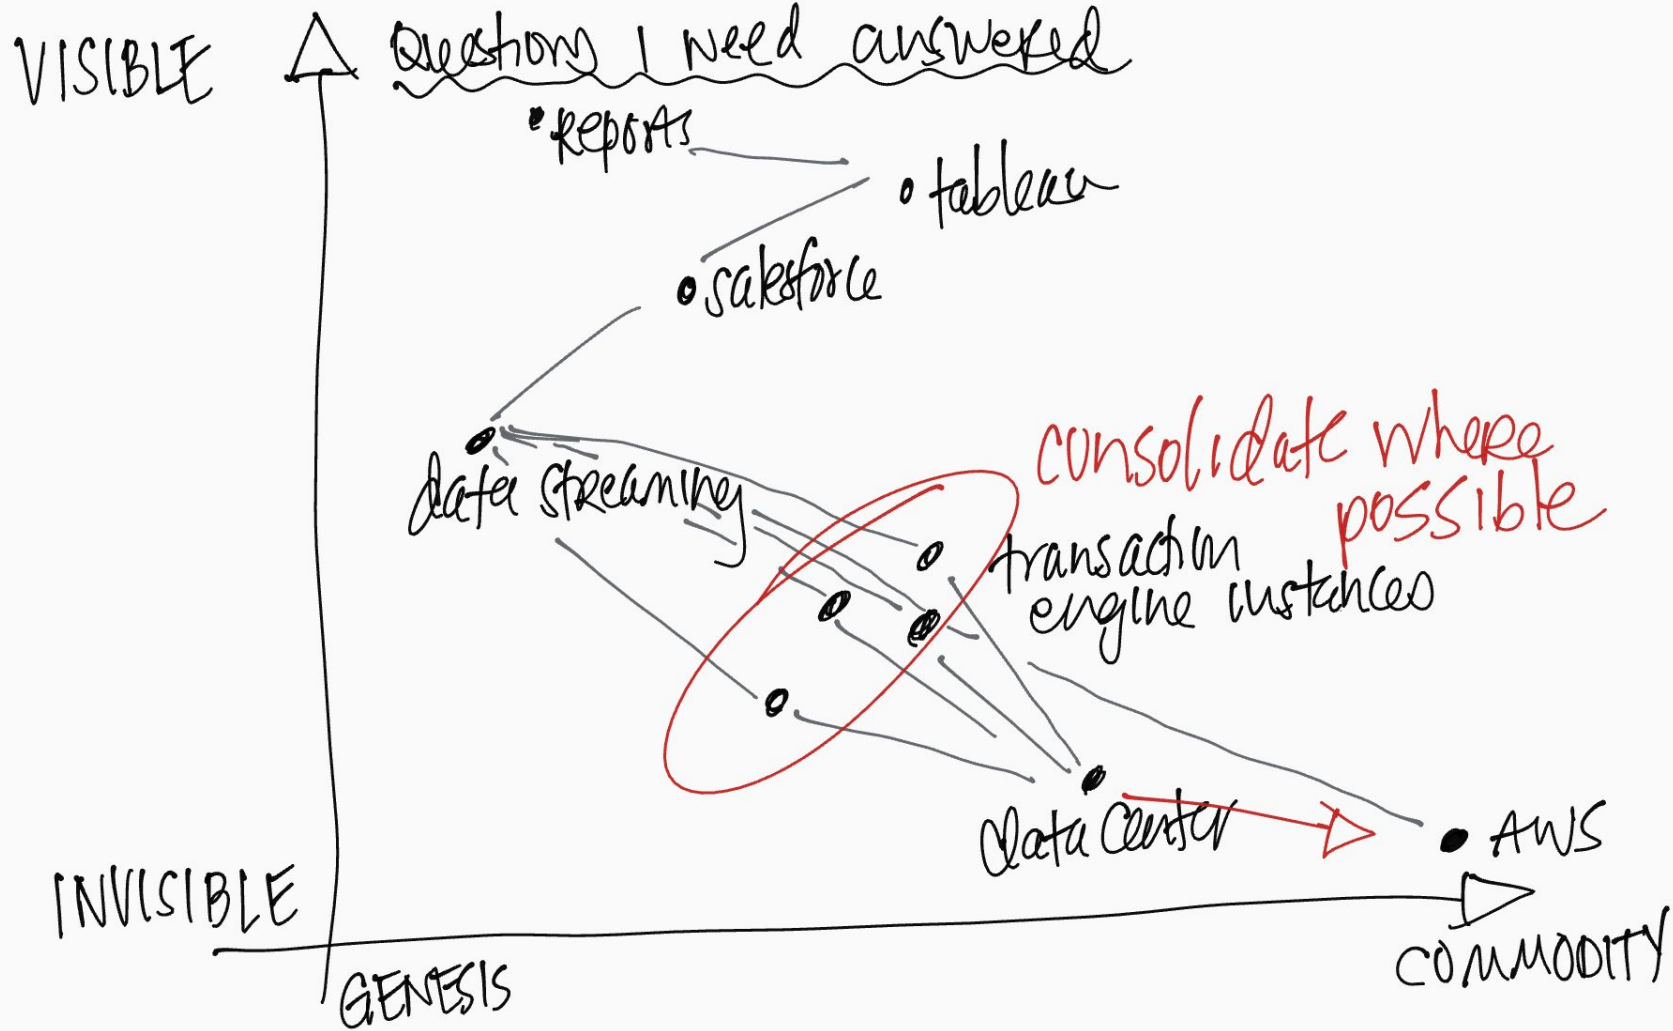 VISIBLE
Questions I need answered
reports
tableau
salesforce
data streaming
consolidate where
possible
transaction
engine instances
data center
AWS
INVISIBLE
GENESIS
COMMODITY